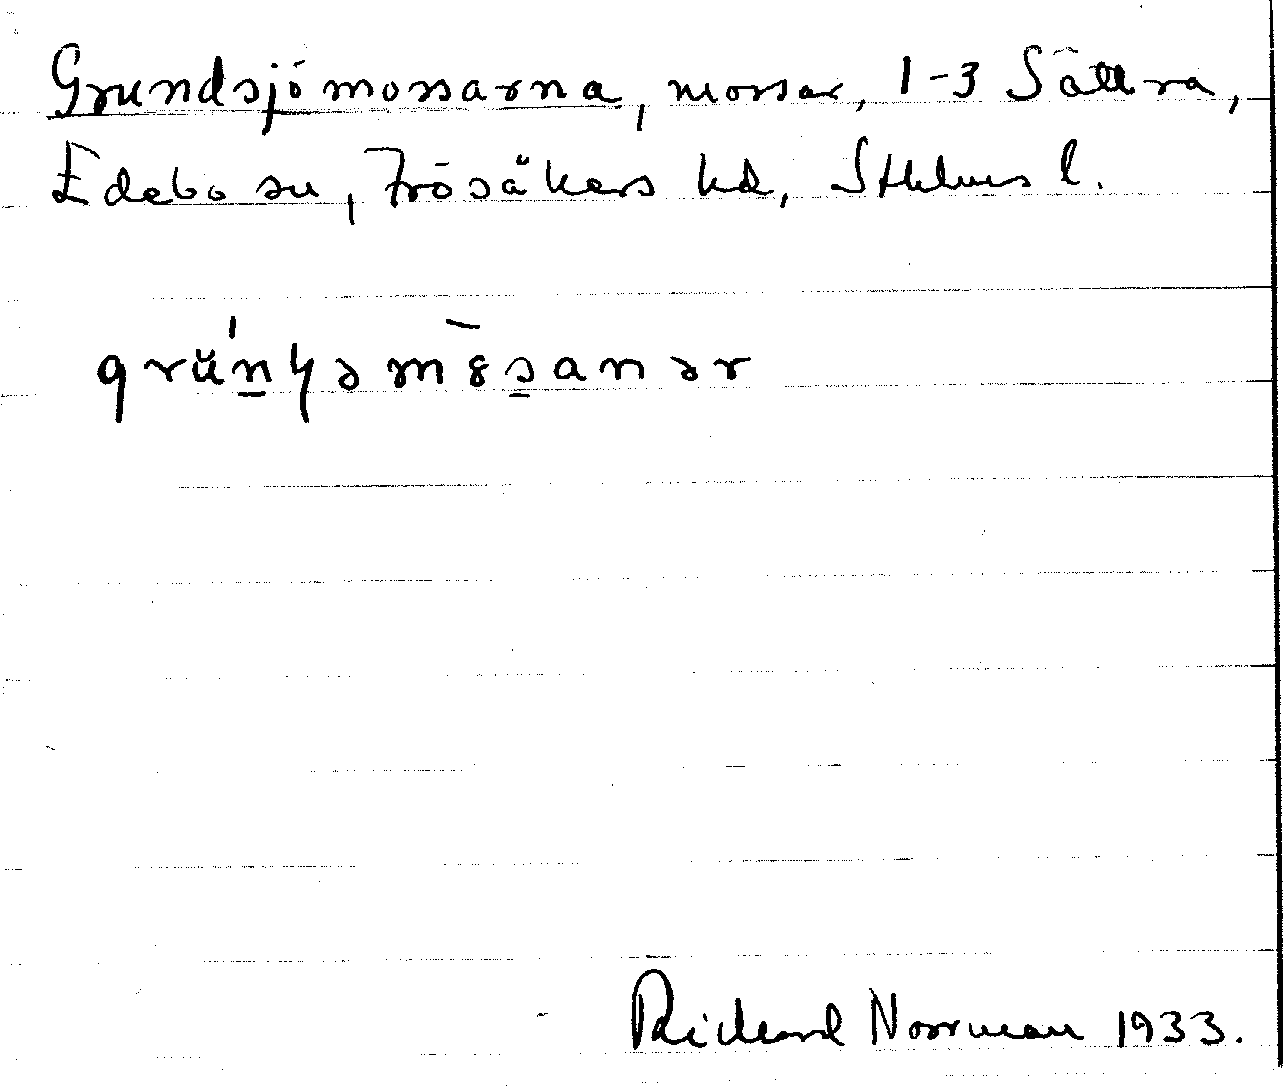 Grundsjömossarna, mossar, 1-3 Sättra,
Edebo sn, Frösåkers hd, Sthlms l.
grŭńɧəmȣ̀sanər
Richard Norrman 1933.